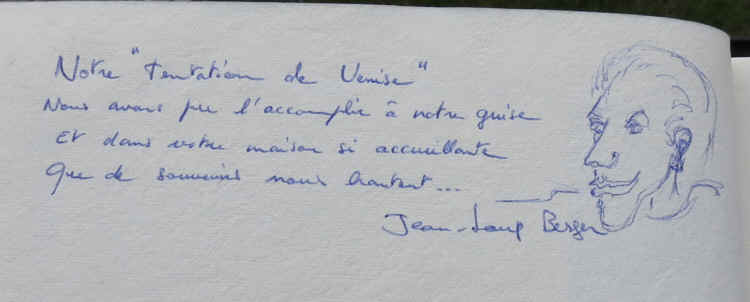 Notre "tentation de Venise"
Nous avons pu l'accomplir à notre guise
Et dans votre maison si accueillante
Que de souvenirs nous hantent...
Jean-Loup Berger